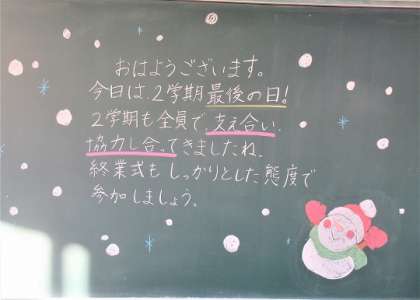 おはようございます。
今日は、2学期最後の日!
2学期も全員で支え合い、
協力し合ってきましたね。
終業式もしっかりとした態度で
参加しましょう。